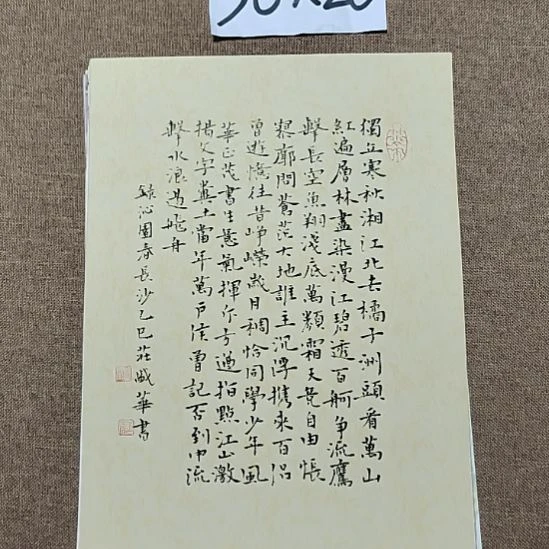 30×20
獨立寒秋湘江北去橘子洲頭看萬山
紅遍層林盡染漫江碧透百舸争流鷹
擊長空魚翔淺底萬類霜天竞自由悵
寥廓問蒼茫大地誰主沉浮攜來百侣
曾遊憶往昔崢嶸歲月稠恰同學少年風
華正茂書生意氣揮斥方遒指點江山激
揚文字糞土當年萬户侯曾記否到中流
擊水浪遏飛舟
錄沁園春長沙乙巳莊威華書